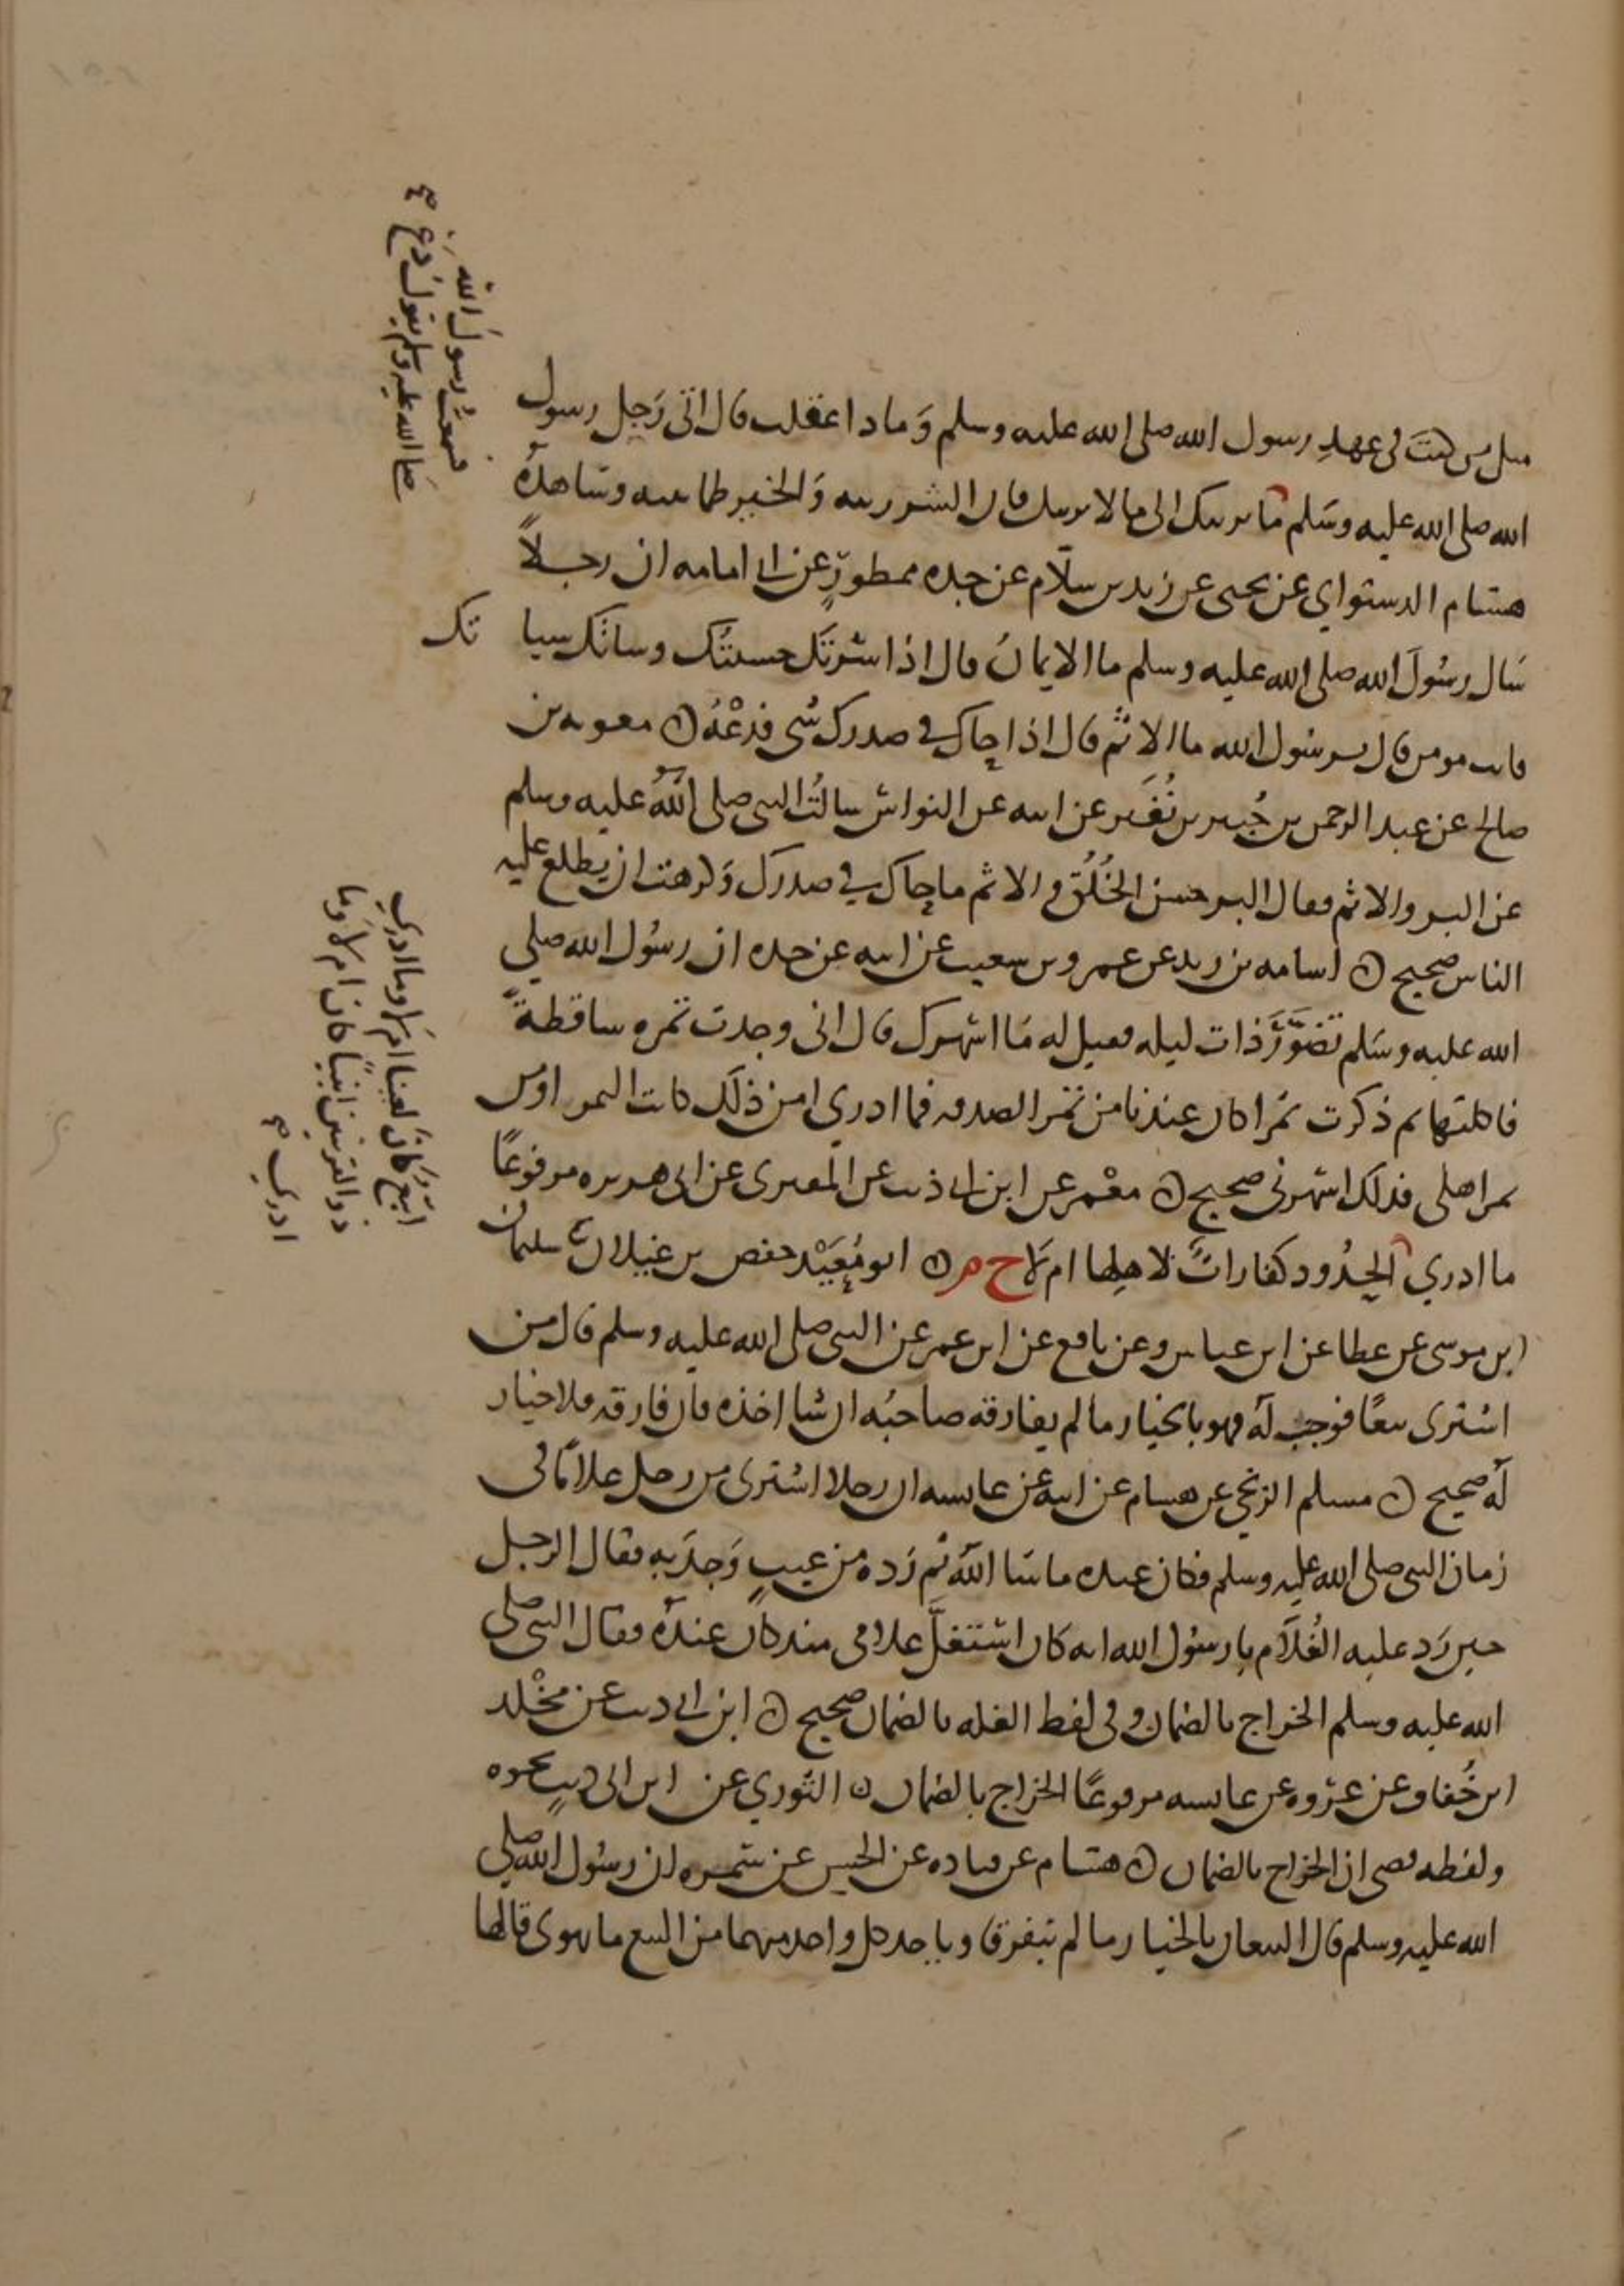 مثل من كنت في عهد رسول الله صلى الله عليه وسلم وَماذا عقلت قال اتى رَجل رسول
الله صلى الله عليه وسَلم ما يريبك الى ما لا يريبك فان الشر ريبه وَالخير طمانينه وشاهدهُ
هشام الدستواي عن يحيى عن زيد بن سلّام عن جده ممطورٍ عن ابي امامه ان رجلاً
سَال رسُولَ الله صلى الله عليه وسلم ما الايمانُ قال اذا سَرتَك حسنتُك وساتك سيا تك
فانت مومن قال يرسُول الله ما الاثم قال اذا حاك في صدرك شي فدَعْهُ ن معويه بن
صالح عن عبد الرحمن بن جُبير بن نُفَير عن ابيه عن النواس سالتُ النبي صلى اللهُ عليه وسلم
عن البر والاثم فقال البر حسن الخُلُق والاثم ما حاك في صدرك وَكرهت ان يطلع عليه
الناس صحيح ن اسامه بن زيد عن عمرو بن سعيب عن ابيه عن جده ان رسُول الله صلي
الله عليه وسَلم تَضوَّرَ ذات ليله فقيل له مَا اسهرك قال اني وجدت تمره ساقطةً
فاكلتها ثم ذكرت تمرا كان عندنا من تمر الصدقه فما ادري امن ذلك كانت التمر او من
تمر اهلي فذلك اسهرني صحيح ن معْمر عن ابن ابي ذيب عن المقبري عن ابي هريره مرفوعًا
ما ادري الحدُود كفاراتٌ لاهلها ام لَا ح م ن ابو مُعَيْد حفص بن غيلان ثنا سليمان
ابن موسى عن عطا عن ابن عباس وعن نافع عن ابن عمر عن النبي صلى الله عليه وسلم قال من
اشترى بيعًا فوجب لهُ فهو بالخيار ما لم يفارقه صاحبُه ان شا اخذه فان فارقه فلا خيار
لهُ صحيح ن مسلم الزنجي عن هشام عن ابيه عن عايشه ان رجلا اشترى من رجل غلامًا في
زمان النبي صلى الله عليه وسلم فكان عنده ما شا اللهُ ثم رَده من عيبٍ وَجدَ به فقال الرجل
حين رَد عليه الغُلَام يا رسُول الله انه كان استغلَّ غلامي منذ كان عندهُ فقال النبي صلى
الله عليه وسلم الخراج بالضمان وفي لفظ الغله بالضمان صحيح ن ابن ابي ذيب عن مَخْلد
ابن خُفاف عن عُروه عن عايشه مرفوعًا الخراج بالضمان ن الثوري عن ابن ابي ذيب نحوه
ولفظه قضى ان الخراج بالضمان ن هشام عن قتاده عن الحسن عن سَمره ان رسُول الله صلي
الله عليه وسلم قال البيعان بالخيار ما لم يتفرقا وياخد كل واحد منهما من البيع ما يهوى قالها
فسمعتُ رسولَ الله
صلى الله عليه وسلم يقول دَع
اتبّعٌ كانَ لَعينا ام لا وما ادري
ذو القرنين انبيًا كان ام لا وما
ادري